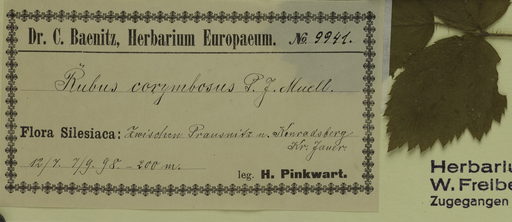 Dr. C. Baenitz, Herbarium Europaeum. No. 9941.
Rubus corymbosus P. J. Muell.
Flora Silesiaca: Zwischen Prausnitz u. Konradsberg
Kr. Jauer
12/7. 7/9. 98. - 200 m.
leg. H. Pinkwart.
Herbariu
W. Freibe
Zugegangen